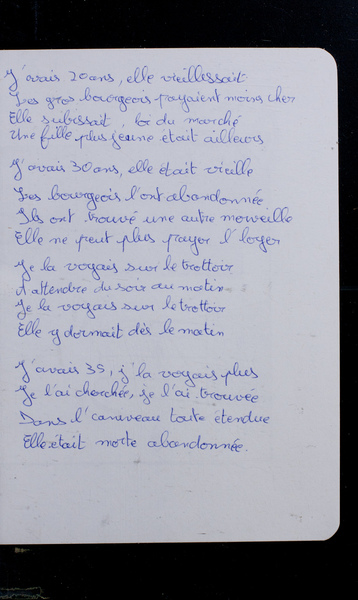 J'avais 20 ans, elle vieillissait
Les gros bourgeois payaient moins cher
Elle subissait, loi du marché
Une fille plus jeune était ailleurs
J'avais 30 ans, elle était vieille
Les bourgeois l'ont abandonnée
Ils ont trouvé une autre merveille
Elle ne peut plus payer l'loyer
Je la voyais sur le trottoir
A attendre du soir au matin
Je la voyais sur le trottoir
Elle y dormait dès le matin
J'avais 35, j'la voyais plus
Je l'ai cherchée, je l'ai trouvée
Dans l'caniveau toute étendue
Elle était morte abandonnée.